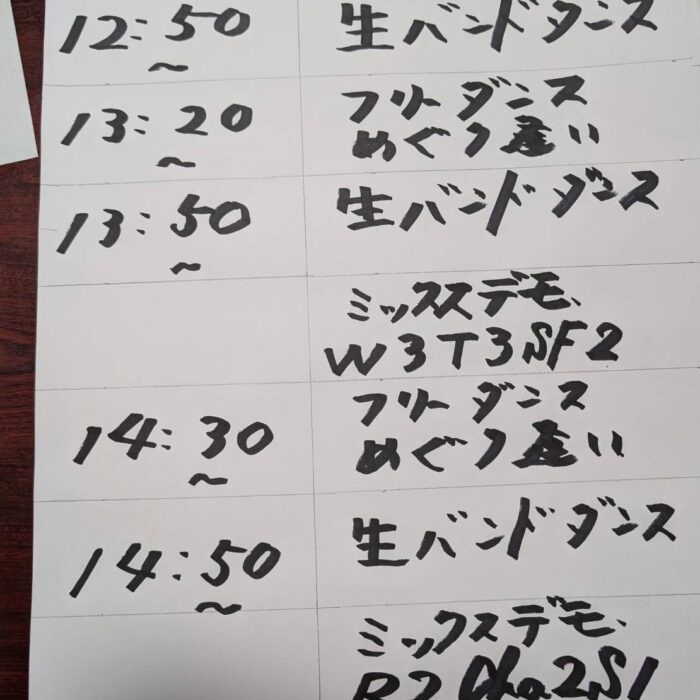 12:50
~
生バンドダンス
13:20
~
フリーダンス
めぐり逢い
13:50
~
生バンドダンス
ミックスデモ、
W3T3SF2
14:30
~
フリーダンス
めぐり逢い
14:50
~
生バンドダンス
ミックスデモ、
R2 Cha2S1